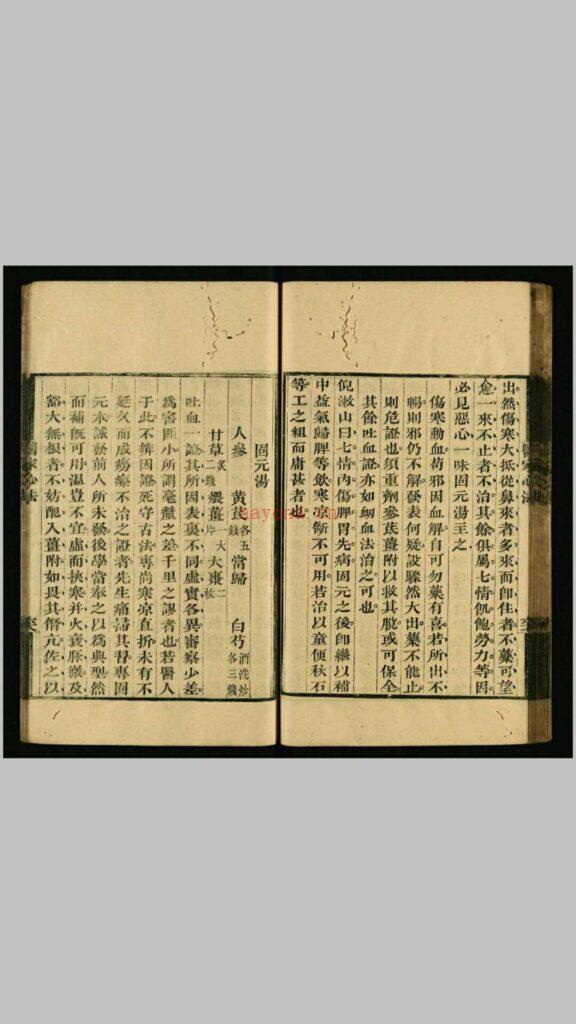 出然傷寒大抵從鼻來者多來而即住者不藥可望
愈一來不止者不治其餘俱屬七情飢飽勞力等因
必見惡心一味固元湯主之
傷寒動血苟邪因血解自可勿藥有喜若所出不
暢則邪仍不解發表何疑設驟然大出藥不能止
則危證也須重劑參芪薑附以救其脫或可保全
其餘吐血證亦如衂血法治之可也
倪漱山曰七情內傷脾胃先病固元之後即繼以補
中益氣歸脾等飲寒凉斷不可用若治以童便秋石
等工之粗而庸甚者也
固元湯
人參 黃芪各五錢 當歸 白芍酒洗炒各三錢
甘草炙二錢 煨薑一大片 大棗二枚
吐血一證其所因表裏不同虛實各異審察少差
爲害匪小所謂毫釐之差千里之謬者也若醫人
于此不辨因證死守古法專尚寒凉直折未有不
延久而成癆瘵不治之證者先生痛掃其習專固
元本誠發前人所未發後學當奉之以爲典型然
而補既可用温豈不宜虛而挾寒并火衰脉微及
豁大無根者不妨配入薑附如畏其僭亢佐之以
醫家心法